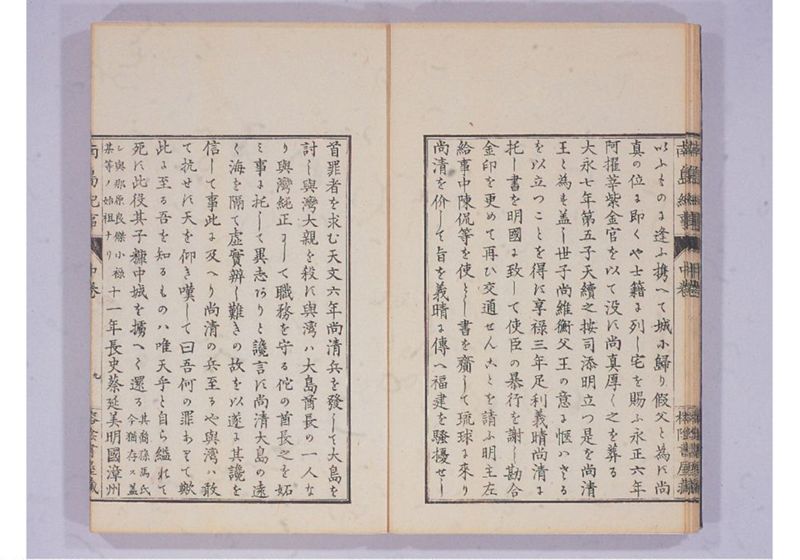 以ふものに逢ふ携へて城小歸り假父と為に尚
真の位に即くや士籍に列し宅を賜ふ永正六年
阿擢莘紫金官を以て没に尚真厚く之を葬る
大永七年第五子天續之按司添明立つ是を尚清
王と為も盖し世子尚維衡父王の意に愜ハさる
を以立つことを得に享禄三年足利義晴尚清に
托し書を明國に致して使臣の暴行を謝し勘合
金印を更めて再ひ交通せんことを請ふ明主左
給事中陳侃等を使とし書を齎して琉球に來り
尚清を价して旨を義晴に傳へ福建を騒擾せし
南島紀事
中巻
九
首罪者を求む天文六年尚清兵を發して大島を
討し與灣大親を殺に與湾ハ大島酋長の一人な
り與灣純正にして職務を守る佗の酋長之を妬
み事に托して異志ありと讒言に尚清大島の遠
く海を隔て虚實辨し難きの故を以遂に其讒を
信して事此に及へり尚清の兵至るや與湾ハ敢
て抗せに天を仰き嘆して曰吾何の罪あそて歟
此に至る吾を知るものハ唯天乎と自ら縊れて
死に此役其子糠中城を擒へく還る其裔孫馬氏今猶存ス盖
シ與那原良傑小祿其等ノ始祖ナリ十一年長史蔡延美明國漳州